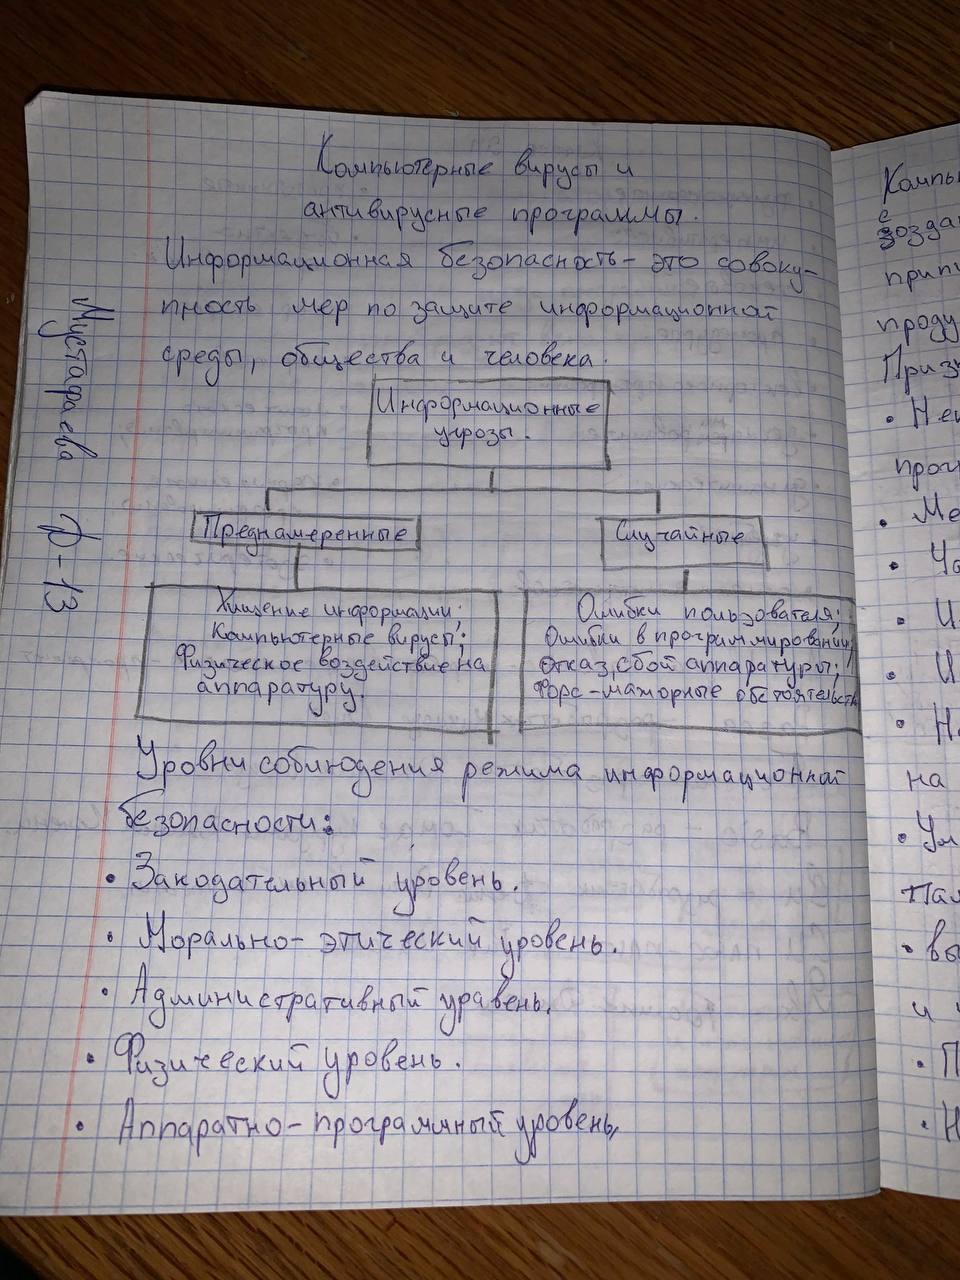 Компьютерные вирусы и
антивирусные программы.
Информационная безопасность - это совоку-
пность мер по защите информационной
среды, общества и человека.
Информационные
угрозы.
Преднамеренные
Случайные
Хищение информации;
Компьютерные вирусы;
Физическое воздействие на
аппаратуру.
Ошибки пользователя;
Ошибки в программировании;
Отказ, сбой аппаратуры;
Форс-мажорные обстоятельств
Уровни соблюдения режима информационной
безопасности:
• Закодательный уровень.
• Морально-этический уровень.
• Административный уравень.
• Физический уровень.
• Аппаратно-програмный уровень,
Мустафаева Ф-13
Компь
созда
припи
проду
Призн
• Неп
прог
• Ме
• Ча
• И
• И
• На
на
• Ум
пам
• вы
и
• П
• Н